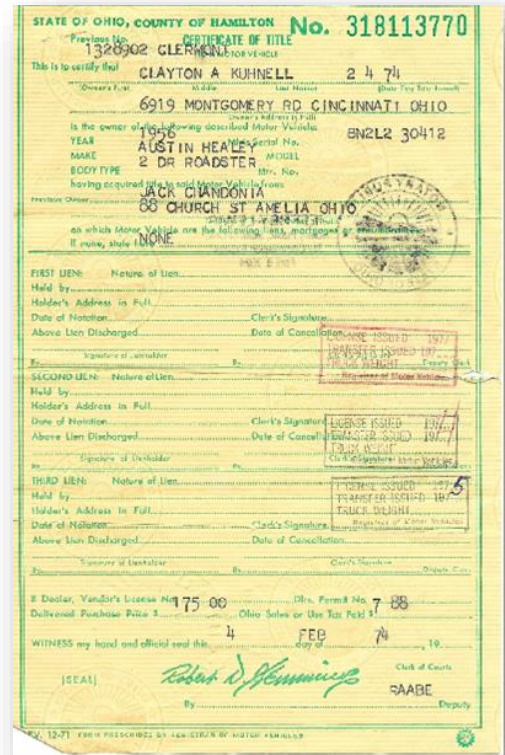 STATE OF OHIO, COUNTY OF HAMILTON No. 318113770
Previous No. CERTIFICATE OF TITLE
1328902 CLERMONT MOTOR VEHICLE
This is to certify that CLAYTON A KUHNELL 2 4 74
Owner's First Middle Last Names
6919 MONTGOMERY RD CINCINNATI OHIO
Owner's Address in Full
is the owner of the following described Motor Vehicle:
YEAR 1956 Serial No. BN2L2 30412
MAKE AUSTIN HEALEY MODEL
BODY TYPE 2 DR ROADSTER Mtr. No.
having acquired title to said Motor Vehicle from
Previous Owner JACK CHANDONIA
88 CHURCH ST AMELIA OHIO
on which Motor Vehicle are the following liens, mortgages or
If none, state NONE
FIRST LIEN: Nature of Lien
Held by
Holder's Address in Full
Date of Notation Clerk's Signature
Above Lien Discharged Date of Cancellation
LICENSE ISSUED 1977
TRANSFER ISSUED 197
TRUCK WEIGHT
Registrar of Motor Vehicles
Signature of Lienholder By Deputy Clerk
SECOND LIEN: Nature of Lien
Held by
Holder's Address in Full
Date of Notation Clerk's Signature
Above Lien Discharged Date of Cancellation
LICENSE ISSUED 197
TRANSFER ISSUED 197
TRUCK WEIGHT
Signature of Lienholder Clerk's Signature
THIRD LIEN: Nature of Lien
Held by
Holder's Address in Full
Date of Notation Clerk's Signature
Above Lien Discharged Date of Cancellation
LICENSE ISSUED 197
TRANSFER ISSUED 1975
TRUCK WEIGHT
Registrar of Motor Vehicles
Signature of Lienholder Clerk's Signature
By By Deputy Clerk
If Dealer, Vendor's License No. Dlrs. Permit No.
Delivered Purchase Price $ 175 00 Ohio Sales or Use Tax Paid $ 7 88
WITNESS my hand and official seal this 4 day of FEB 74, 19
[SEAL] Clerk of Courts
RAABE
By Deputy
V. 12-71 FORM PRESCRIBED BY REGISTRAR OF MOTOR VEHICLES